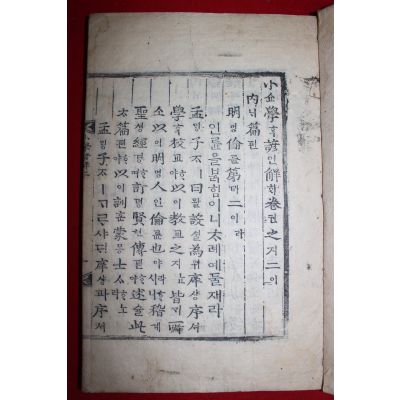 小쇼學ᄒᆞᆨ諺언解ᄒᆡ卷권之지二이
內ᄂᆡ篇편
明명倫륜第뎨二이라
인륜을붉힘이니ᄎᆞ례예둘재라
孟ᄆᆡᆼ子ᄌᆞㅣ曰왈設셜為위庠샹序셔
學ᄒᆞᆨ校교ᄒᆞ야以이敎교之지ᄂᆞᆫ皆ᄀᆡ所
소以이明명人인倫륜也야ㅣ라ᄒᆞ시니稽계
聖셩經경ᄒᆞ며訂뎡賢현傳뎐ᄒᆞ야述슐此
ᄎᆞ篇편ᄒᆞ야以이訓훈蒙몽士ᄉᆞᄒᆞ노라
孟ᄆᆡᆼ子ᄌᆞㅣᄀᆞᆯᄋᆞ샤ᄃᆡ庠샹과序셔